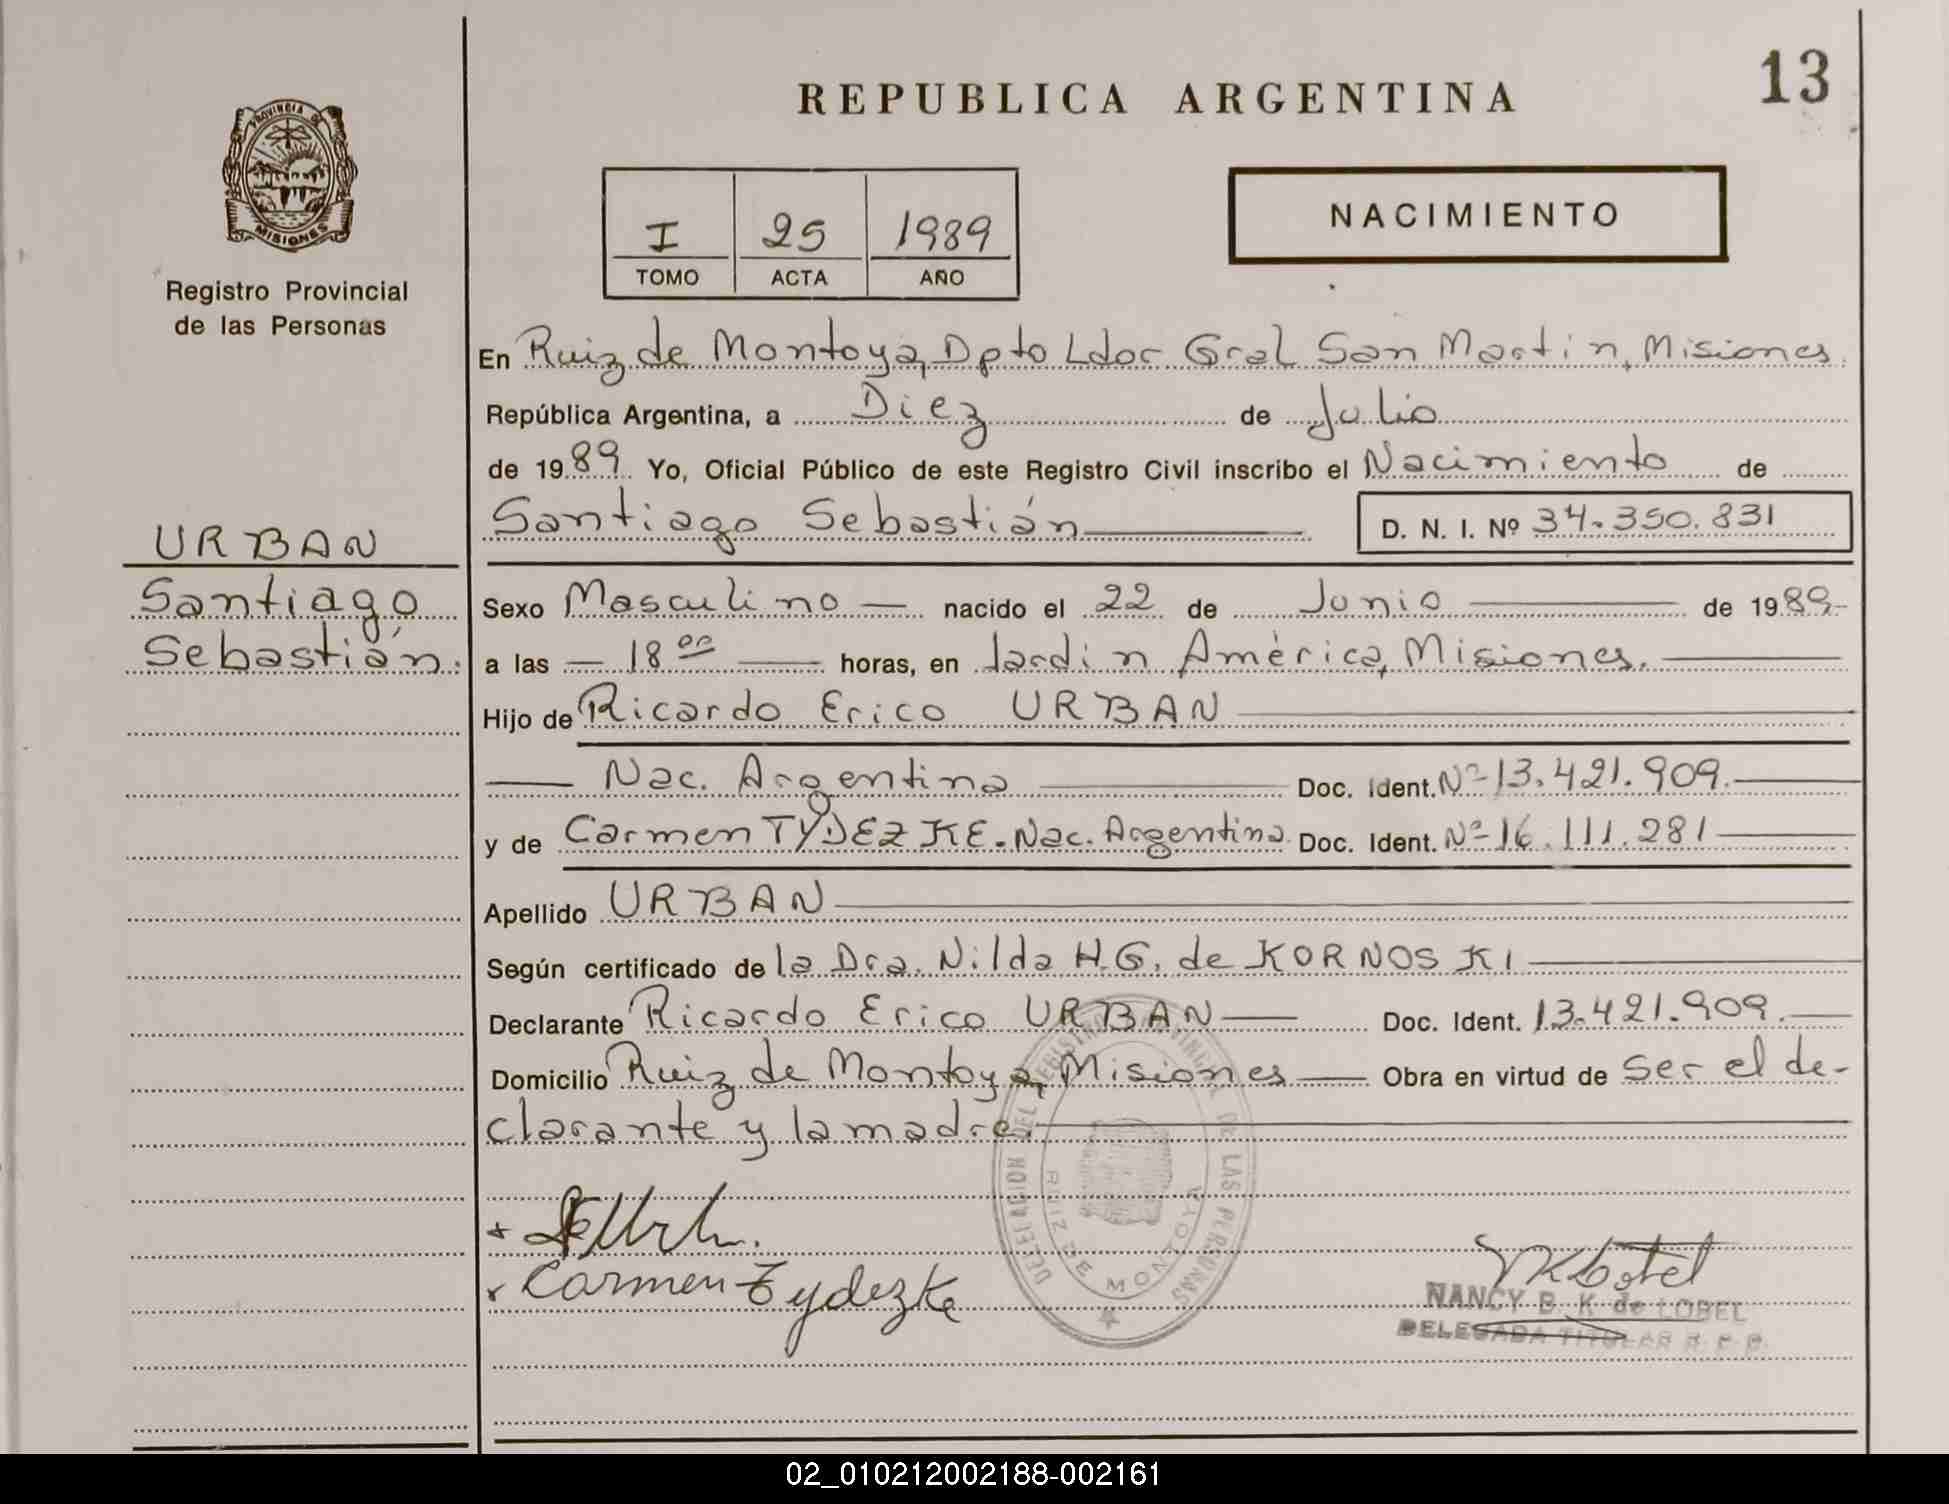 13
REPUBLICA ARGENTINA
PROVINCIA DE
MISIONES
Registro Provincial
de las Personas
I 25 1989
TOMO ACTA AÑO
NACIMIENTO
En Ruiz de Montoya, Dpto Ldor Gral San Martin, Misiones.
República Argentina, a Diez de Julio
de 1989. Yo, Oficial Público de este Registro Civil inscribo el Nacimiento de
Santiago Sebastián
D. N. I. Nº 34.350.831
URBAN
Santiago
Sebastián.
Sexo Masculino nacido el 22 de Junio de 1989-
a las 18 00 horas, en Jardin América, Misiones.
Hijo de Ricardo Erico URBAN
Nac. Argentina Doc. Ident. Nº 13.421.909.
y de Carmen TYDEZKE. Nac. Argentina. Doc. Ident. Nº 16.111.281
Apellido URBAN
Según certificado de la Dra. Nilda H.G. de KORNOSKI
Declarante Ricardo Erico URBAN Doc. Ident. 13.421.909.
Domicilio Ruiz de Montoya, Misiones Obra en virtud de ser el de-
clarante y la madre.
DELEGACION DEL REGISTRO PROVINCIAL DE LAS PERSONAS
RUIZ DE MONTOYA
Carmen Tydezke
NANCY B. K. de LOBEL
DELEGADA TITULAR R. P. P.
02_010212002188-002161